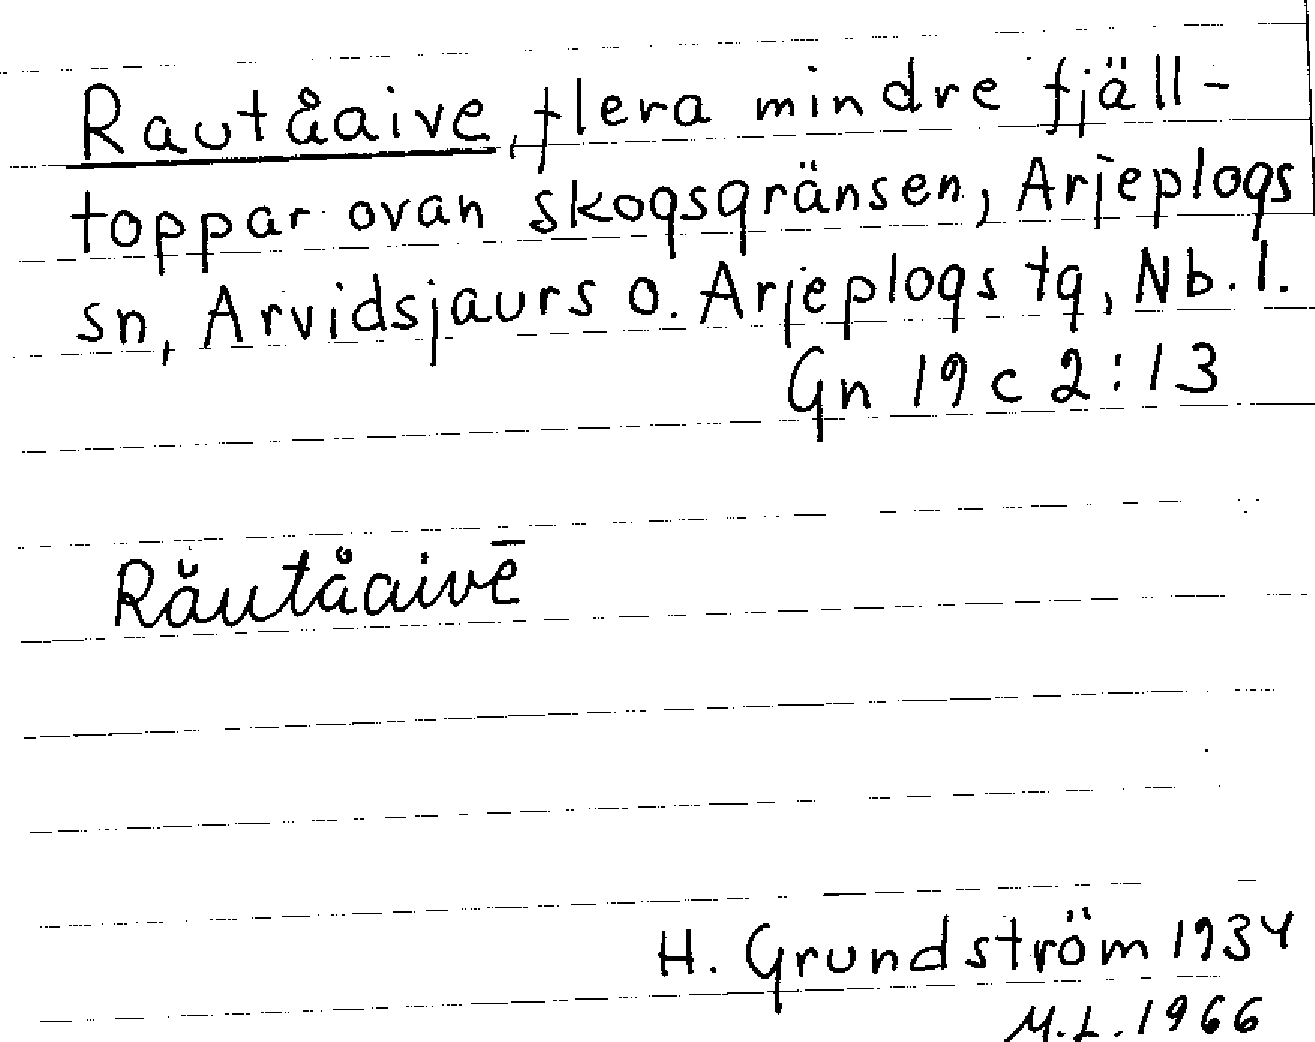 Rautåaive, flera mindre fjäll-
toppar ovan skogsgränsen, Arjeplogs
sn, Arvidsjaurs o. Arjeplogs tg, Nb. l.
Gn 19 c 2:13
Răutåaivē
H. Grundström 1934
M.L. 1966